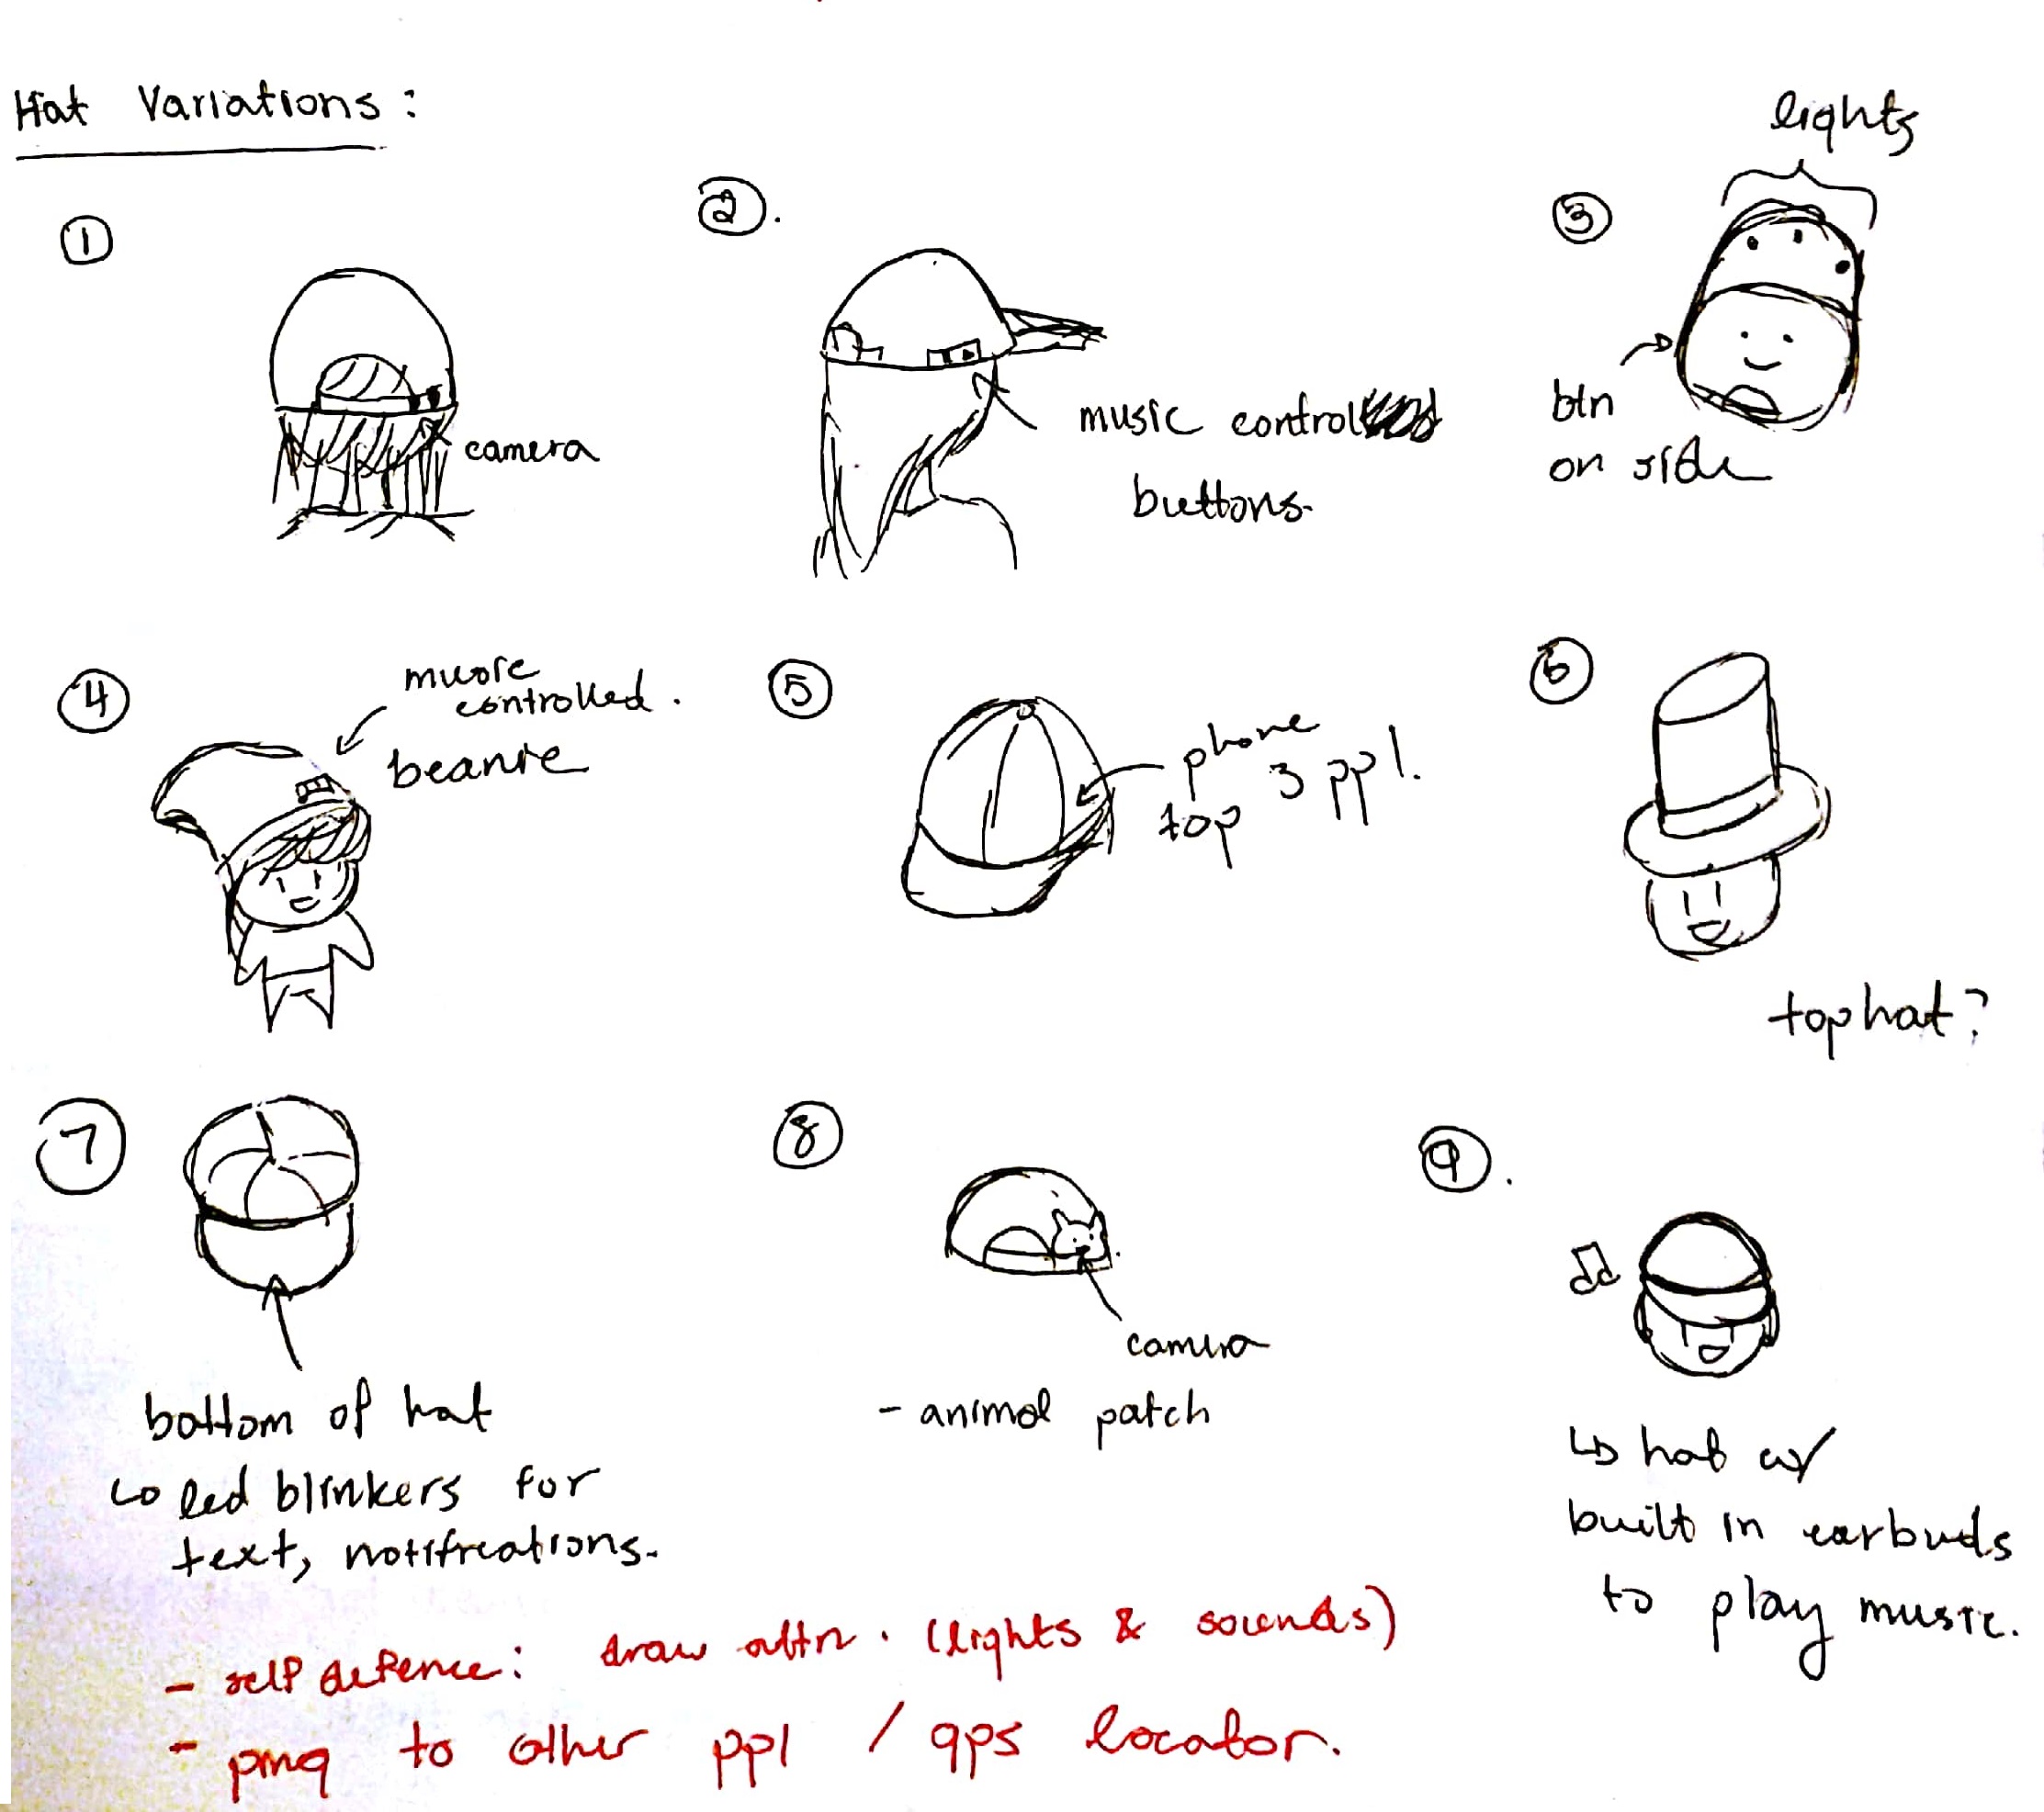 Hat Variations:
lights
①
②.
③
camera
music control
buttons.
btn
on side
④
music
controlled.
beanie
⑤
phone
top 3 ppl.
⑥
top hat?
⑦
bottom of hat
↳ led blinkers for
text, notifications.
⑧
camera
- animal patch
⑨.
♫
↳ hat w/
built in earbuds
to play music.
- self defence: draw attn. (lights & sounds)
- ping to other ppl / gps locator.